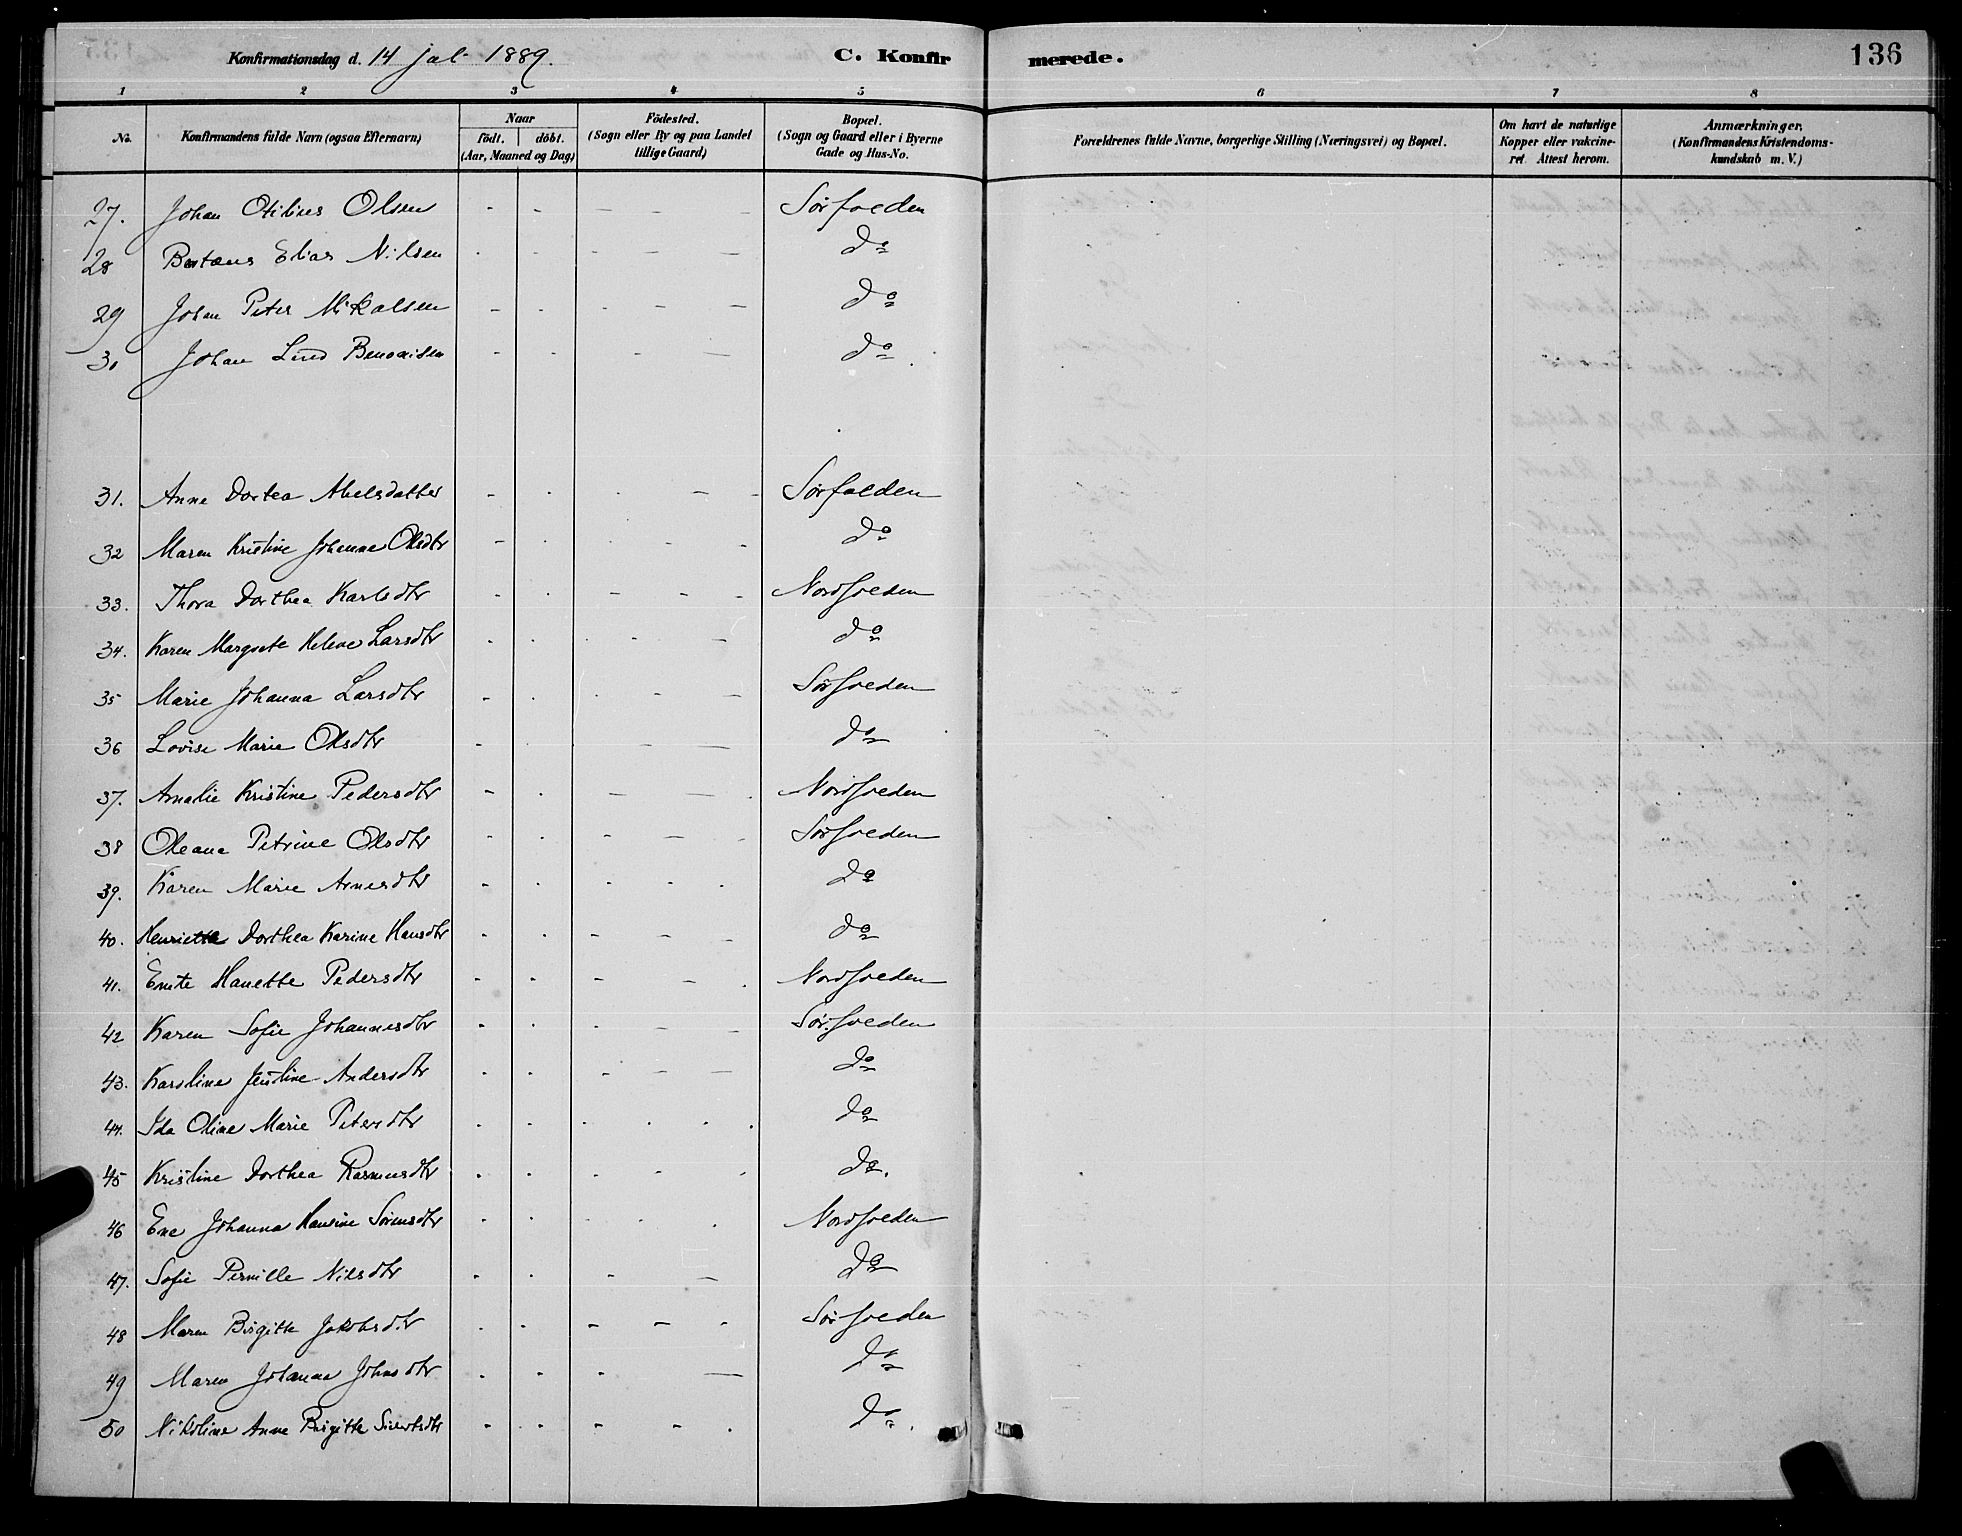 Konfirmationsdag d. 14 jul. 1889.
C. Konfirmerede.
136
1 2 3 4 5 6 7 8
No.
Konfirmandens fulde Navn (ogsaa Efternavn)
Naar
födt. döbt.
(Aar, Maaned og Dag)
Födested.
(Sogn eller By og paa Landet
tillige Gaard)
Bopæl.
(Sogn og Gaard eller i Byerne
Gade og Hus-No.
Forældrenes fulde Navne, borgerlige Stilling (Næringsvei) og Bopæl.
Om havt de naturlige
Kopper eller vakcine-
ret. Attest herom.
Anmærkninger.
(Konfirmandens Kristendoms-
kundskab m. V.)
27. Johan Otilius Olsen - - - - - Sørfolden
28 Elias Nilsen - - - - - do
29 Johan Peter Mikalsen - - - - - do
30 Johan Lind Benonisen - - - - do
31. Anne Dortea Abelsdatter - - - - - Sørfolden
32 Maren Kristine Johanna Olsdtr - - - - - do
33. Thora Dorthea Karlsdtr - - - - - Nordfolden
34. Karen Margrete Helene Larsdtr - - - - - do
35 Marie Johanna Larsdtr - - - - - Sørfolden
36 Lovise Marie Olsdtr - - - - - do
37. Amalie Kristine Pedersdtr - - - - - Nordfolden
38 Oleana Petrine Olsdtr - - - - - Sørfolden
39. Karen Marie Arnesdtr - - - - - do
40. Henriette Dorthea Karine Hansdtr - - - - - do
41. Hanette Pedersdtr - - - - - Nordfolden
42 Karen Sofie Johannesdtr - - - - - Sørfolden
43. Karoline Justine Andersdtr - - - - - do
44. Ida Oline Marie Petersdtr - - - - - do
45 Kristine Dorthea Rasmusdtr - - - - - do.
46 Ene Johanna Hansine Sørensdtr - - - - - Nordfolden
47. Sofie Pernille Nilsdtr - - - - do
48 Maren Birgitte Jakobsdtr - - - - - Sørfolden
49 Maren Johanna Johnsdtr - - - - do
50 Nikoline Anne Birgitte Sivertsdtr - - - - - do.